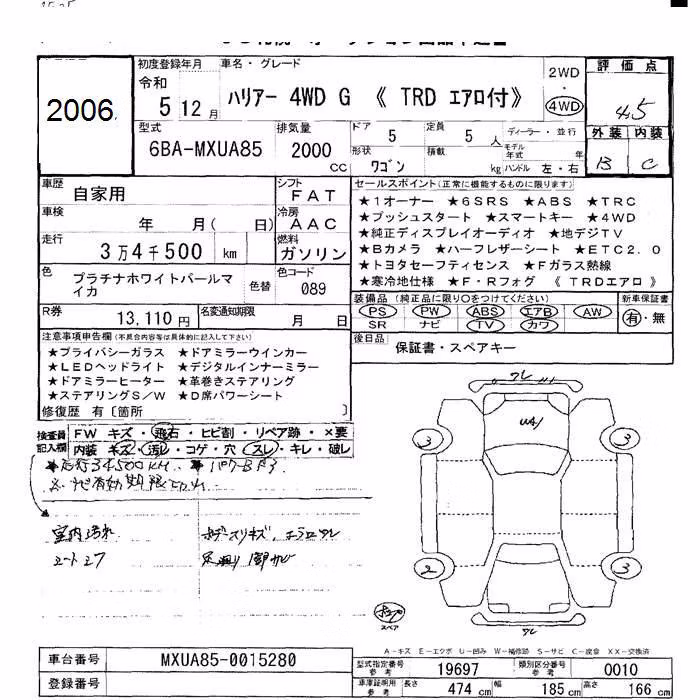 2006.
初度登録年月 車名・グレード
令和
5 12月 ハリアー 4WD G 《 TRD エアロ付》
2WD
4WD
評価点
4.5
外装 内装
B C
型式 排気量 ドア 定員 ディーラー・並行
6BA-MXUA85 2000 cc 5 5 人
モデル年式 年
形状 積載
ワゴン kg ハンドル 左・右
車歴 自家用
シフト FAT
車検 年 月( 日)
冷房 AAC
走行 3万4千500 km
燃料 ガソリン
色 プラチナホワイトパールマイカ
色替
色コード 089
R券 13,110円
名変通知期限 月 日
セールスポイント(正常に機能するものに限ります)
★1オーナー ★6SRS ★ABS ★TRC
★プッシュスタート ★スマートキー ★4WD
★純正ディスプレイオーディオ ★地デジTV
★Bカメラ ★ハーフレザーシート ★ETC2.0
★トヨタセーフティセンス ★Fガラス熱線
★寒冷地仕様 ★F・Rフォグ 《TRDエアロ》
装備品(純正品に限り○をつけてください)
PS PW ABS エアB AW
SR ナビ TV カワ
新車保証書
有・無
後日品 保証書・スペアキー
注意事項申告欄(不具合内容等は具体的に記入して下さい)
★プライバシーガラス ★ドアミラーウインカー
★LEDヘッドライト ★デジタルインナーミラー
★ドアミラーヒーター ★革巻きステアリング
★ステアリングS/W ★D席パワーシート
修復歴 有〔箇所 〕
検査員記入欄
FW キズ・飛石・ヒビ割・リペア跡・×要
内装 キズ・汚レ・コゲ・穴・スレ・キレ・破レ
走行34500KM
室内汚れ
シートスレ
ボデースリキズ、エアロワレ
足廻り
スペア
ワレ
U4
3 3
2 3
ワレ
A-キズ E-エクボ U-凹み W-補修跡 S-サビ C-腐食 XX-交換済
車台番号 MXUA85-0015280
登録番号
型式指定番号 参考 19697
類別区分番号 参考 0010
車庫証明用 参考 長さ 474 cm 幅 185 cm 高さ 166 cm